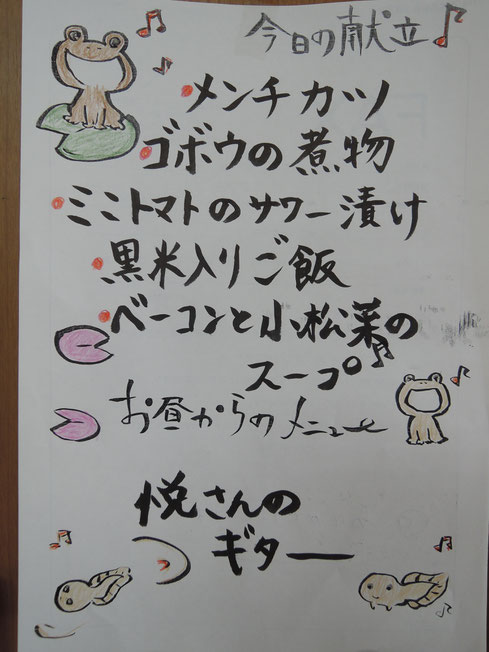 今日の献立
メンチカツ
ゴボウの煮物
ミニトマトのサワー漬け
黒米入りご飯
ベーコンと小松菜の
スープ
お昼からのメニュー
悦さんの
ギター